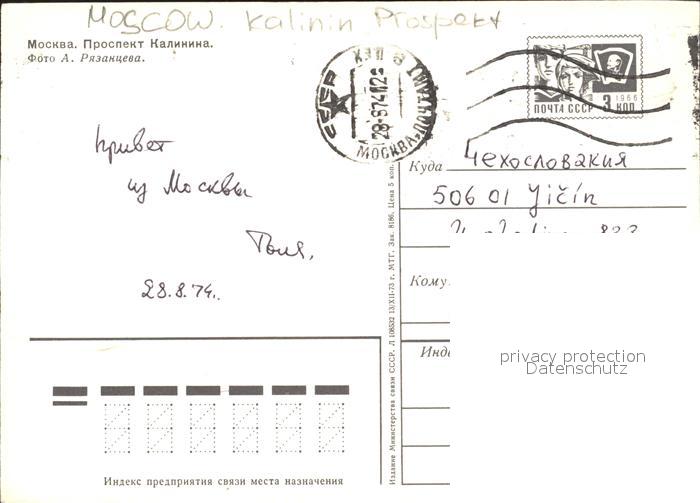 MOSCOW. Kalinin Prospekt
Москва. Проспект Калинина.
Фото А. Рязанцева.
СССР
28-8 74 12
МОСКВА-ПОЧТАМТ
ПОЧТА СССР 3 КОП
1966
Привет
из Москвы
Толя.
28.8.74.
Куда Чехословакия
506 01 Jičín
Кому
Инд
privacy protection
Datenschutz
Издание Министерства связи СССР. Л 108532 13/XII-73 г. МТГ. Зак. 8186. Цена 5 коп.
Индекс предприятия связи места назначения